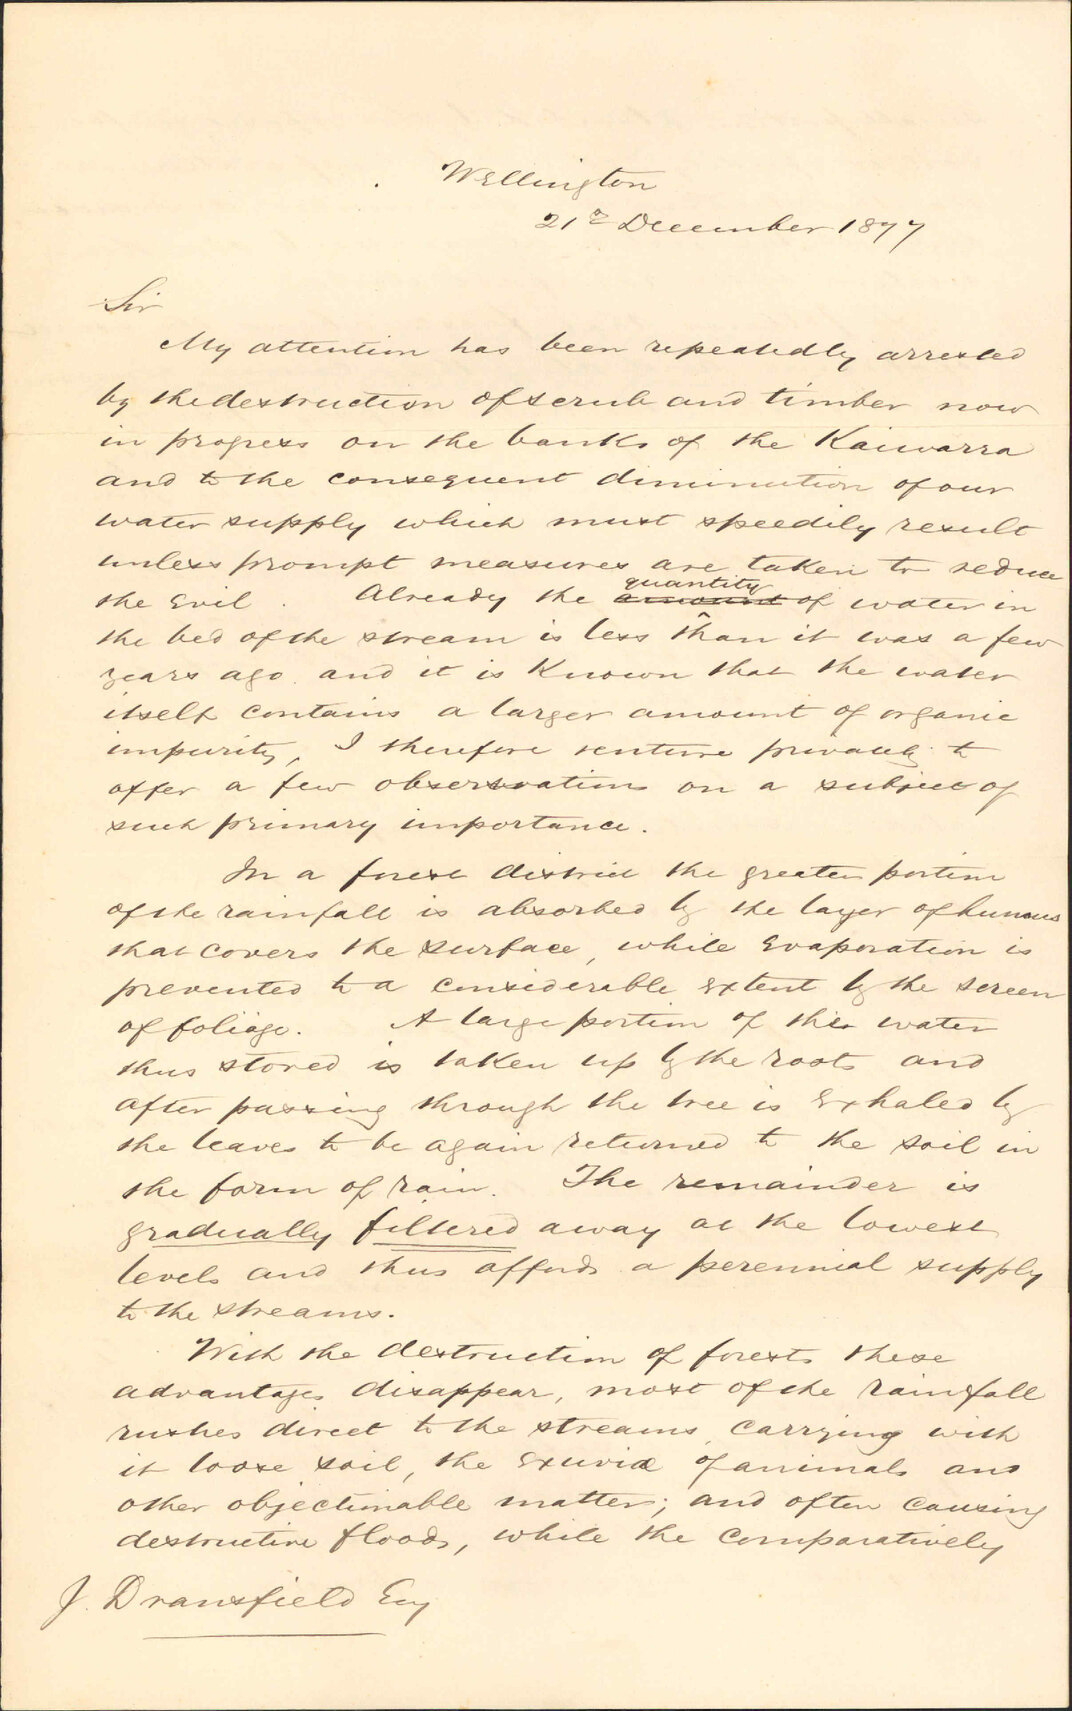 Wellington
21st December 1877
Sir
My attention has been repeatedly arrested
by the destruction of scrub and timber now
in progress on the banks of the Kaiwarra
and to the consequent diminution of our
water supply which must speedily result
unless prompt measures are taken to reduce
the evil. Already the amount quantity of water in
the bed of the stream is less than it was a few
years ago and it is Known that the water
itself contains a larger amount of organic
impurity, I therefore venture privately to
offer a few observations on a subject of
such primary importance.
In a forest district the greater portion
of the rainfall is absorbed by the layer of humus
that covers the surface, while evaporation is
prevented to a considerable extent by the screen
of foliage. A large portion of this water
thus stored is taken up by the roots and
after passing through the tree is exhaled by
the leaves to be again returned to the soil in
the form of rain. The remainder is
gradually filtered away at the lowest
levels and thus affords a perennial supply
to the streams.
With the destruction of forests these
advantages disappear, most of the rainfall
rushes direct to the streams carrying with
it loose soil, the exuviæ of animals and
other objectionable matter; and often causing
destructive floods, while the comparatively
J. Dransfield Esq